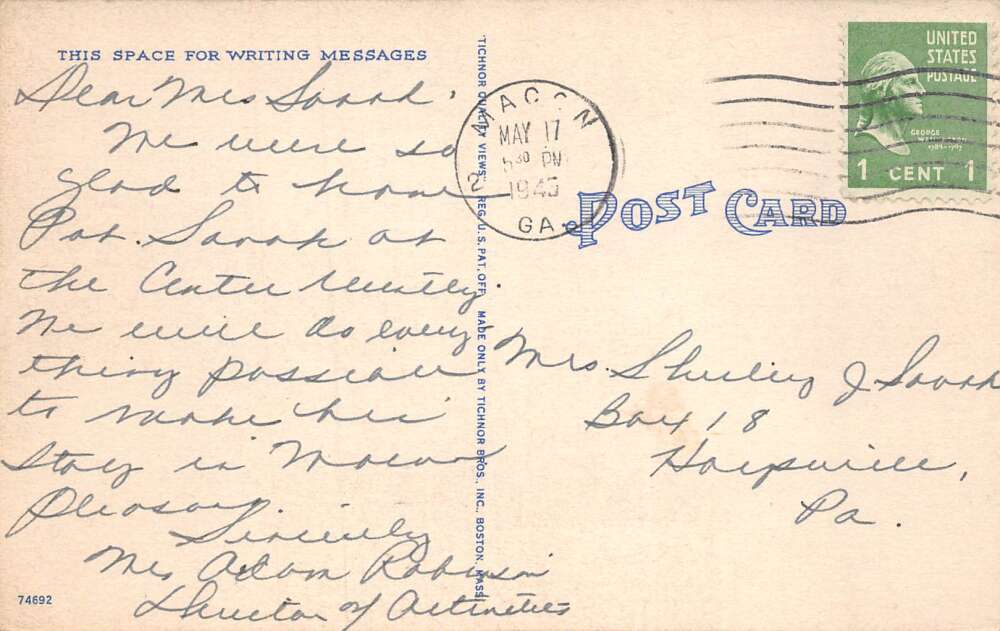 THIS SPACE FOR WRITING MESSAGES
Dear Mrs
We were so
glad to have
Pvt. at
the Center
We will do every
thing possible
to make his
stay in Macon
pleasant
Sincerely
Mrs Adam Robinson
Director of Activities
74692
TICHNOR QUALITY VIEWS, REG. U.S. PAT. OFF. MADE ONLY BY TICHNOR BROS., INC., BOSTON, MASS.
MACON
MAY 17
5 30 PM
1945
2
GA.
POST CARD
UNITED
STATES
POSTAGE
GEORGE
WASHINGTON
1789-1797
1 CENT 1
Mrs. Shirley J
Box 18
Pa.